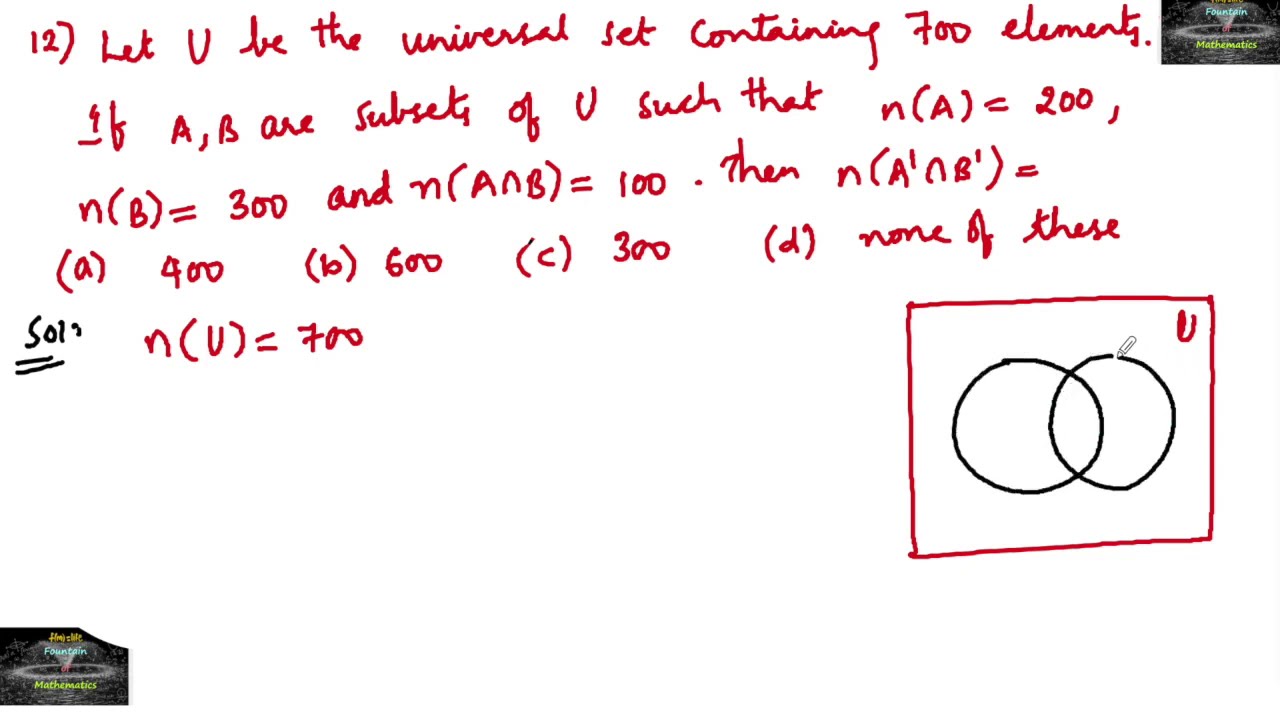 12) Let U be the universal set containing 700 elements.
If A, B are subsets of U such that n(A) = 200,
n(B) = 300 and n(A∩B) = 100. Then n(A'∩B') =
(a) 400 (b) 600 (c) 300 (d) none of these
Sol: n(U) = 700
U
Fountain
of
Mathematics
f(m)=life
Fountain
of
Mathematics